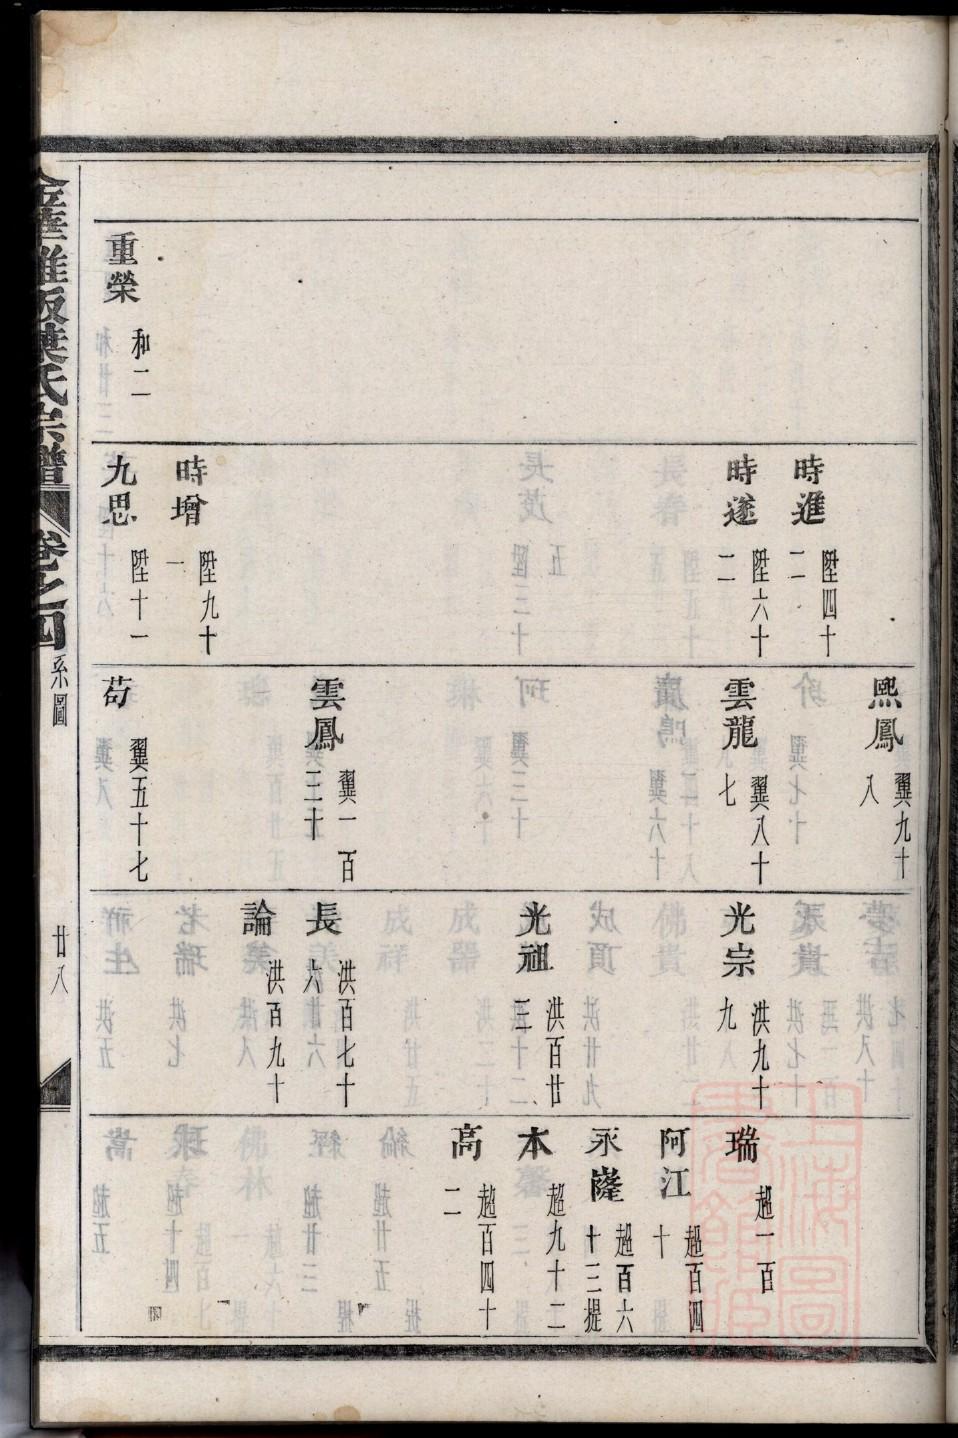 重榮 和二
時進 陞四十二
時遂 陞六十二
時增 陞九十一
九思 陞十一
熙鳳 翼九十八
雲龍 翼八十七
雲鳳 翼一百三十
苟 翼五十七
光宗 洪九十九
光祖 洪百廿三
長 洪百七十六
論 洪百九十
瑞 超一百
阿江 超百四十
永嶐 超百六十三提
本 超九十二
高 超百四十二
葉氏宗譜 卷之四 系圖 廿八
上海圖書館藏